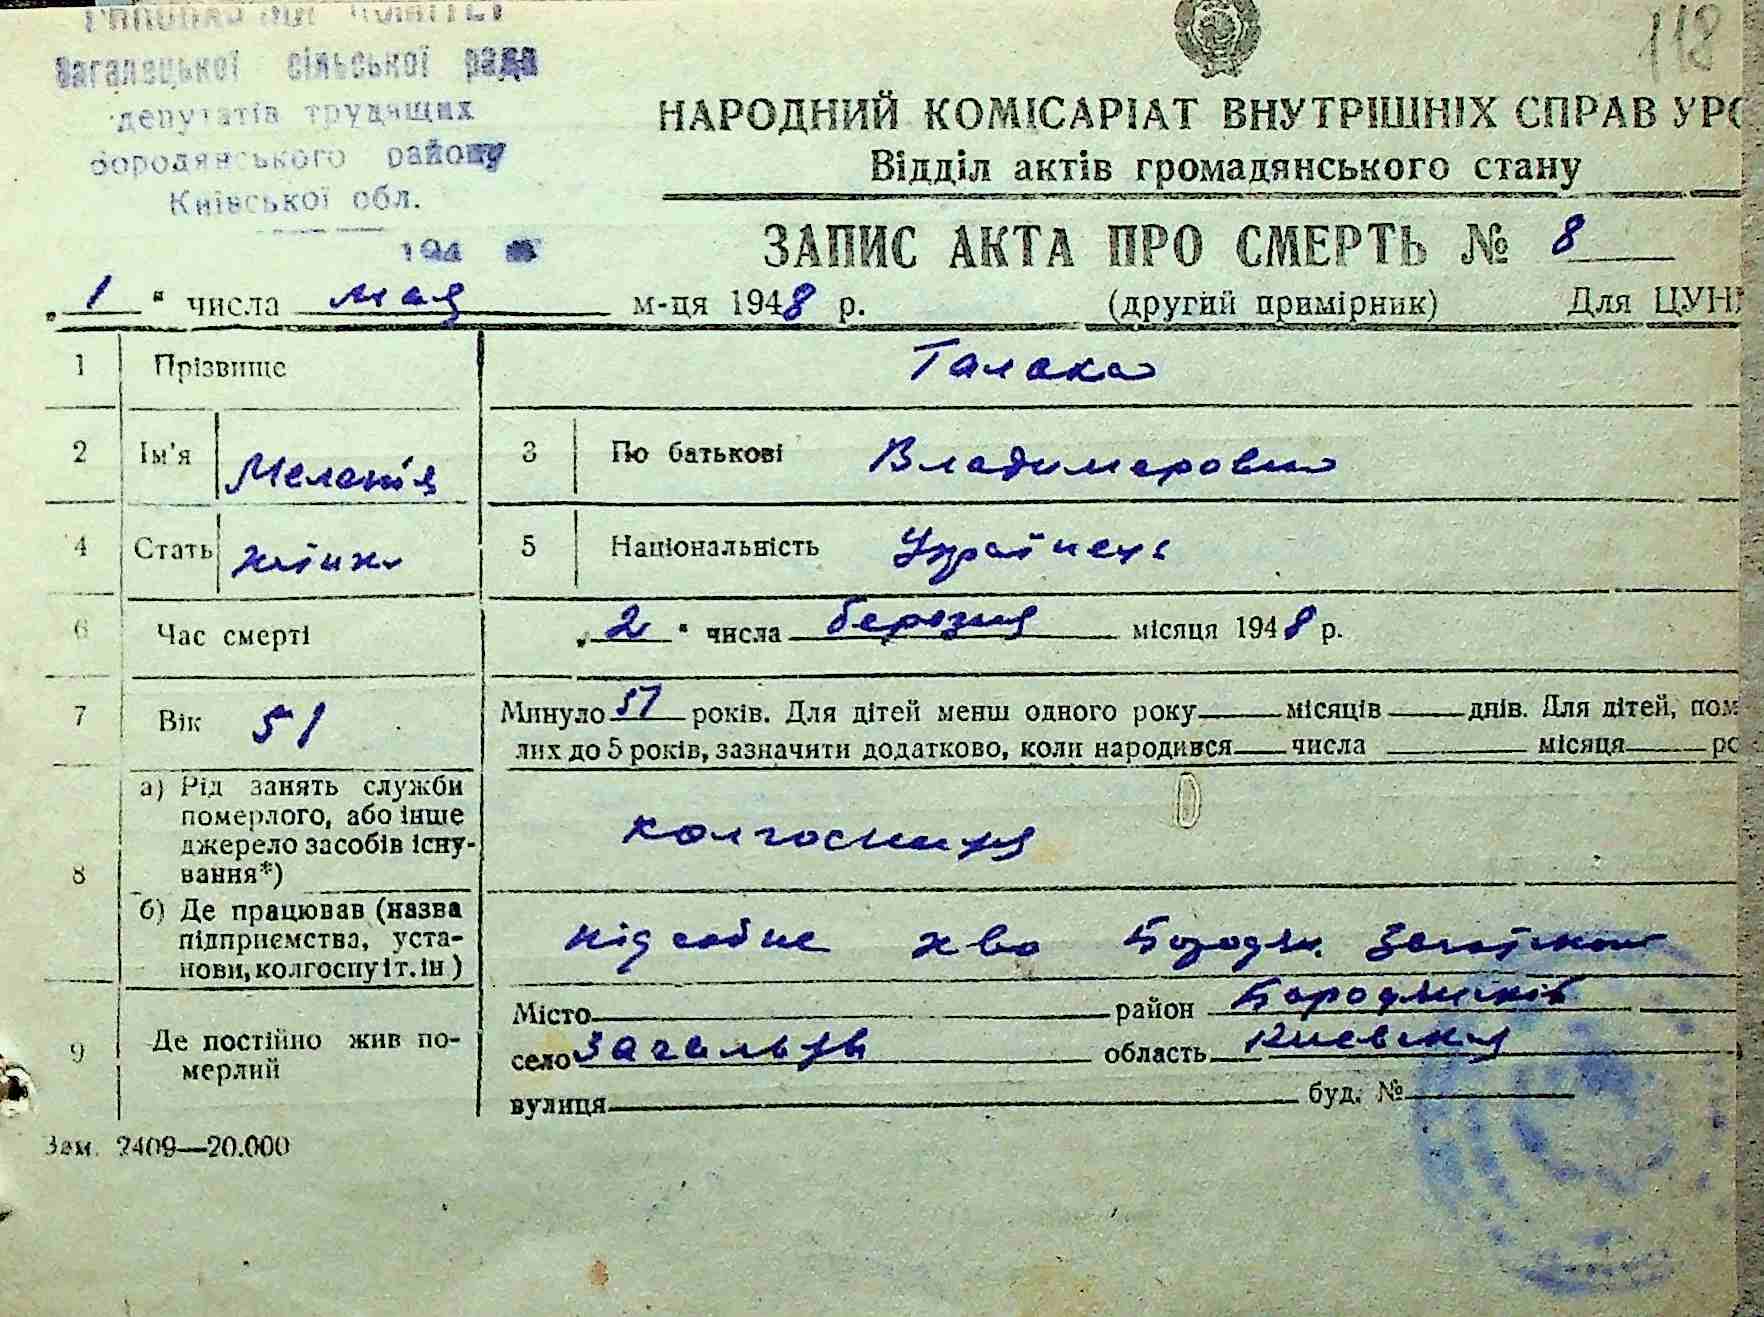 118
Загалецької сільської рада
депутатів трудящих
Бородянського району
Київської обл.
194
НАРОДНИЙ КОМІСАРІАТ ВНУТРІШНІХ СПРАВ УРС
Відділ актів громадянського стану
ЗАПИС АКТА ПРО СМЕРТЬ № 8
„ 1 “ числа мая м-ця 1948 р. (другий примірник) Для ЦУН
1 Прізвище Талака
2 Ім'я Меланія 3 По батькові Владимеровна
4 Стать жінка 5 Національність Українець
6 Час смерті „ 2 “ числа березня місяця 1948 р.
7 Вік 51 Минуло 51 років. Для дітей менш одного року місяців днів. Для дітей, пом
лих до 5 років, зазначити додатково, коли народився числа місяця ро
8 а) Рід занять служби
померлого, або інше
джерело засобів існу-
вання*)
колгоспниця
б) Де працював (назва
підприємства, уста-
нови, колгоспу і т. ін)
підсобне х-во Бородян.
9 Де постійно жив по-
мерлий
Місто район Бородянській
село Загальци область Киевская
вулиця буд. №
Зам. 2409—20.000